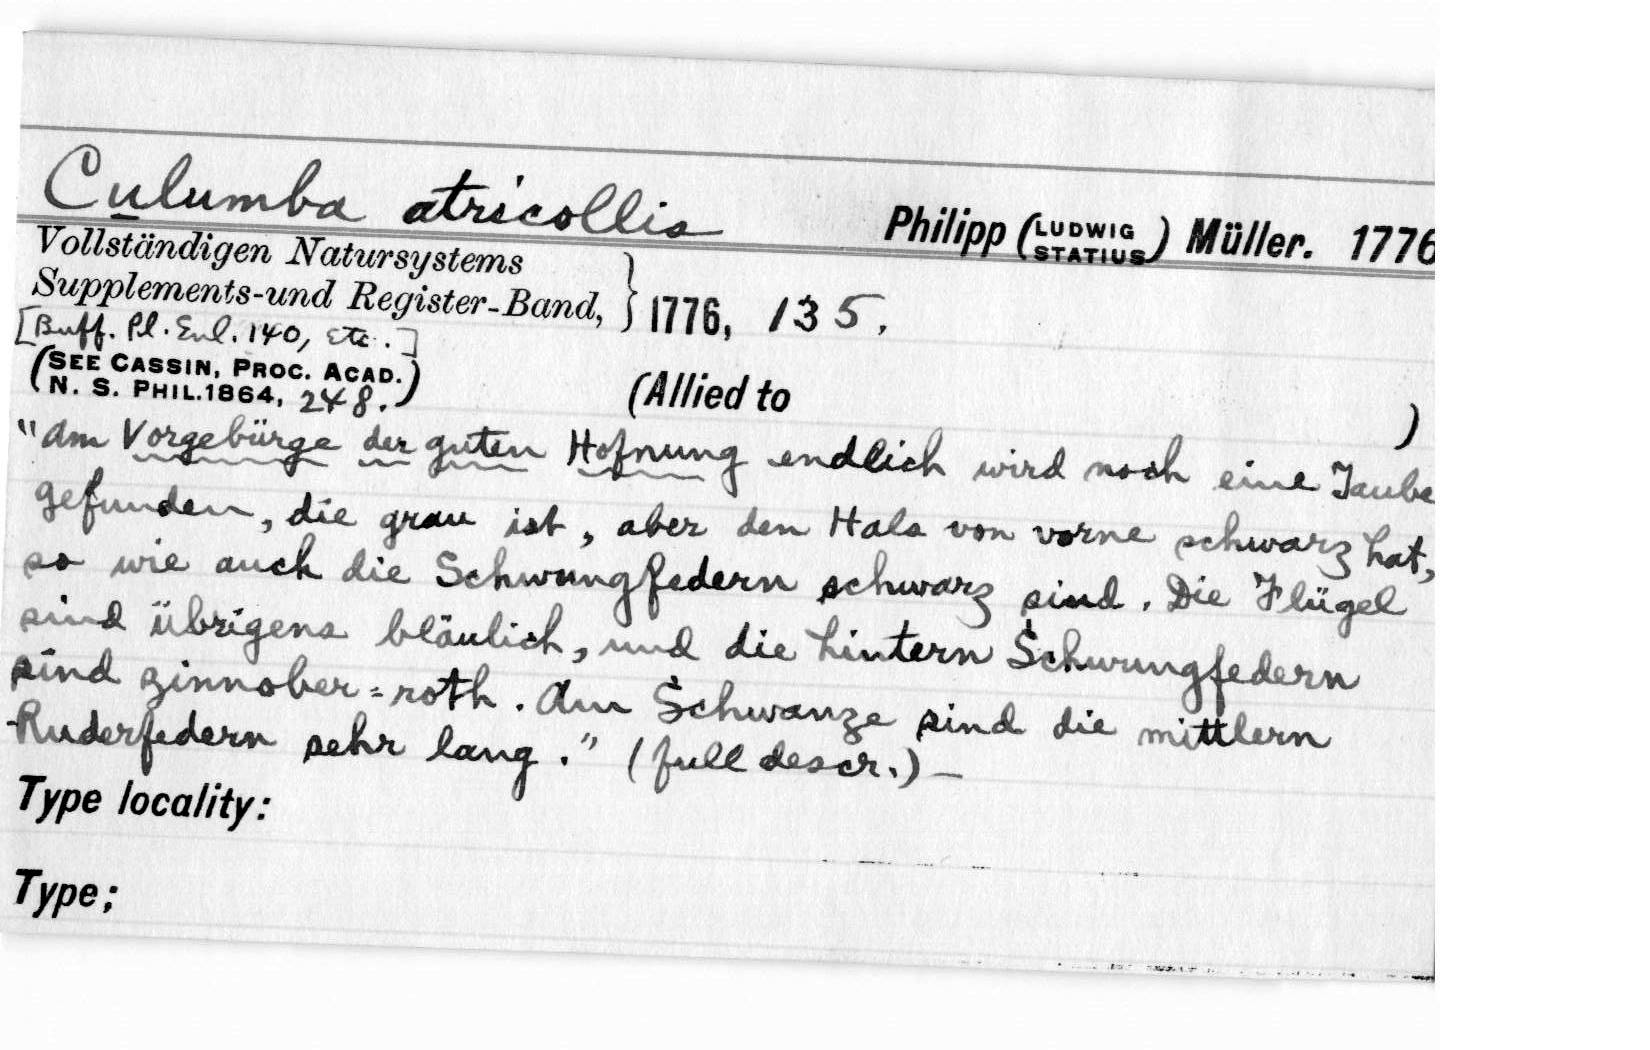 Culumba atricollis Philipp (LUDWIG STATIUS) Müller. 1776
Vollständigen Natursystems
Supplements-und Register-Band, } 1776, 135.
[Buff. Pl. Enl. 140, etc.]
(SEE CASSIN, PROC. ACAD.
N. S. PHIL. 1864, 248.) (Allied to )
"Am Vorgebürge der guten Hofnung endlich wird noch eine Taube
gefunden, die grau ist, aber den Hals von vorne schwarz hat,
so wie auch die Schwungfedern schwarz sind. Die Flügel
sind übrigens bläulich, und die hintern Schwungfedern
sind zinnober=roth. Am Schwanze sind die mittlern
Ruderfedern sehr lang." (full descr.) —
Type locality:
Type;